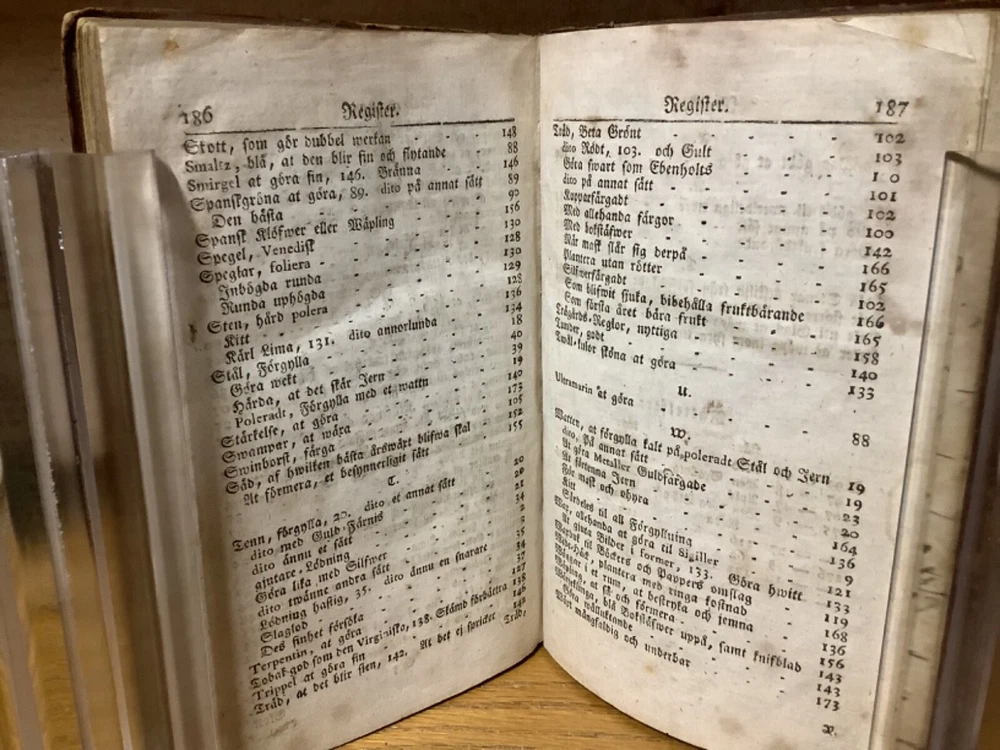 186 Register.
Stott, som gör dubbel werkan - - - 148
Smaltz, blå, at den blir fin och flytande - 88
Smirgel at göra fin, 146. Bränna - - 146
Spanskgröna at göra, 89. dito på annat sätt 89
Den bästa - - - 90
Spansk Klöfwer eller Wäpling - - 156
Spegel, Venedisk - - - 130
Speglar, foliera - - - 128
Inbögda runda - - - 130
Runda uphögda - - - 129
Sten, hård polera - - - 128
Kitt - - - 136
Kärl Lima, 131. dito annorlunda - - 134
Stål, Förgylla - - - 18
Göra wekt - - - 40
Härda, at det skär Jern - - - 39
Poleradt, Förgylla med et wattn - - 19
Stärkelse, at göra - - - 140
Swampar, at wäxa - - - 173
Swinborst, färga - - - 105
Säd, af hwilken bästa årswäxt blifwa skal - 152
At förmera, et besynnerligit sätt - - 155
T.
Tenn, förgylla, 20. dito et annat sätt - 20
dito med Guld-Färnis - - - 20
dito ännu et sätt - - - 21
Lödning - - - 34
Göra lika med Silfwer - - - 2
dito twänne andra sätt - - - 3
Lödning hastig, 35. dito ännu en snarare 35
Slaglod - - - 34
Des finhet försöka - - - 37
Terpentin, at göra - - - 127
Tobak god som den Virginiska, 138. Skämd förbättra 138
Trippel at göra fin - - - 146
Träd, at det blir sten, 142. At det ej spricker 142
Träd,
Register. 187
Träd, Beta Grönt - - - 102
dito Rödt, 103. och Gult - - - 103
Göra swart som Ebenholts - - - 1 0
dito på annat sätt - - - 101
Kopparfärgadt - - - 102
Med allehanda färgor - - - 100
Med bokstäfwer - - - 142
När mask slår sig derpå - - - 166
Plantera utan rötter - - - 165
Silfwerfärgadt - - - 102
Som blifwit sjuka, bibehålla fruktbärande 166
Som första året bära frukt - - - 165
Trägårds-Reglor, nyttiga - - - 158
Tunder, godt - - - 140
Twål-kulor sköna at göra - - - 133
U.
Ultramarin at göra - - - 88
W.
Watten, at förgylla kalt på poleradt Stål och Jern 19
dito, På annat sätt - - - 19
At göra Metaller Guldfärgade - - - 23
At förtenna Jern - - - 20
För mask och ohyra - - - 164
Kitt - - - 136
Särdeles til all Förgyllning - - - 9
Wax, allehanda at göra til Sigiller - - - 121
At giuta Bilder i former, 133. Göra hwitt 133
Waxduk til Böckers och Pappers omslag - 119
plantera med ringa kostnad - 168
Wäggar i et rum, at bestryka och jemna 136
Wäpling, at så och förmera - - - 156
blå Bokstäfwer uppå, samt knifblad 143
Göra wälluktande - - - 143
Wäxt mångfaldig och underbar - - - 173
X.